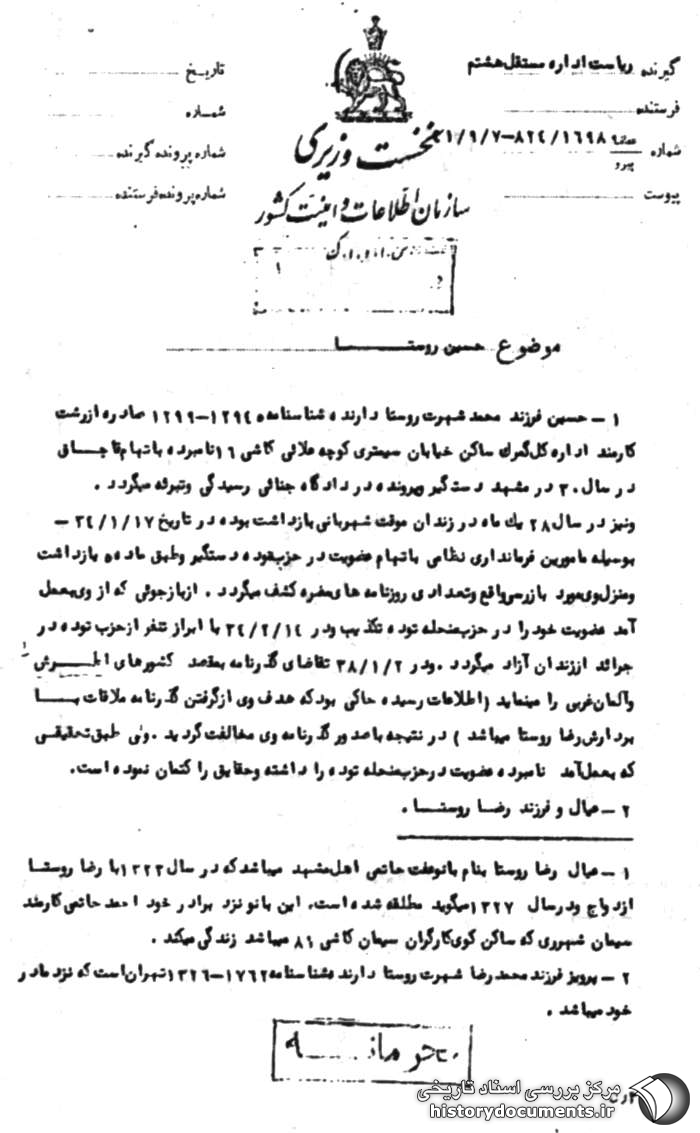 گیرنده ریاست اداره مستقل هشتم
فرستنده
شماره ۸۲۴/۱۶۹۸-۴۱/۹/۷
پیرو
پیوست
نخست وزیری
سازمان اطلاعات و امنیت کشور
س.ا.و.ا.ک
تاریخ
شماره
شماره پرونده گیرنده
شماره پرونده فرستنده
موضوع حسین روستا
۱ - حسین فرزند محمد شهرت روستا دارنده شناسنامه ۱۲۹۴-۱۲۹۹ صادره از رشت
کارمند اداره کل گمرک ساکن خیابان سیمتری کوچه علائی کاشی ۱۶ نامبرده باتهام قاچاق
در سال ۳۰ در مشهد دستگیر وپرونده در دادگاه جنائی رسیدگی وتبرئه میگردد .
ونیز در سال ۲۸ یک ماه در زندان موقت شهربانی بازداشت بوده در تاریخ ۳۴/۱/۱۷ -
بوسیله مامورین فرمانداری نظامی باتهام عضویت در حزب توده دستگیر وطبق ماده ۵ بازداشت
ومنزل وی مورد بازرسی واقع وتعدادی روزنامه های مضره کشف میگردد . از بازجوئی که از وی بعمل
آمد عضویت خود را در حزب منحله توده تکذیب ودر ۳۴/۲/۱۴ با ابراز تنفر از حزب توده در
جرائد از زندان آزاد میگردد .ودر ۳۸/۱/۲ تقاضای گذرنامه بمقصد کشورهای اطریش
وآلمان غربی را مینماید (اطلاعات رسیده حاکی بود که هدف وی از گرفتن گذرنامه ملاقات با
بردارش رضا روستا میباشد ) در نتیجه باصدور گذرنامه وی مخالفت گردید .ولی طبق تحقیقی
که بعمل آمد نامبرده عضویت در حزب منحله توده را داشته وحقایق را کتمان نموده است.
۲ - عیال و فرزند رضا روستا .
۱ - عیال رضا روستا بنام بانو عفت حاتمی اهل مشهد میباشد که در سال ۱۳۲۳ با رضا روستا
ازدواج ودر سال ۱۳۲۷ میگوید مطلقه شده است. این بانو نزد برادر خود احمد حاتمی کارمند
سیمان شهرری که ساکن کوی کارگران سیمان کاشی ۸۱ میباشد زندگی میکند .
۲ - پرویز فرزند محمد رضا شهرت روستا دارنده شناسنامه ۱۷۶۲-۱۳۲۶ تهران است که نزد مادر
خود میباشد .
محرمانه
مرکز بررسی اسناد تاریخی
historydocuments.ir